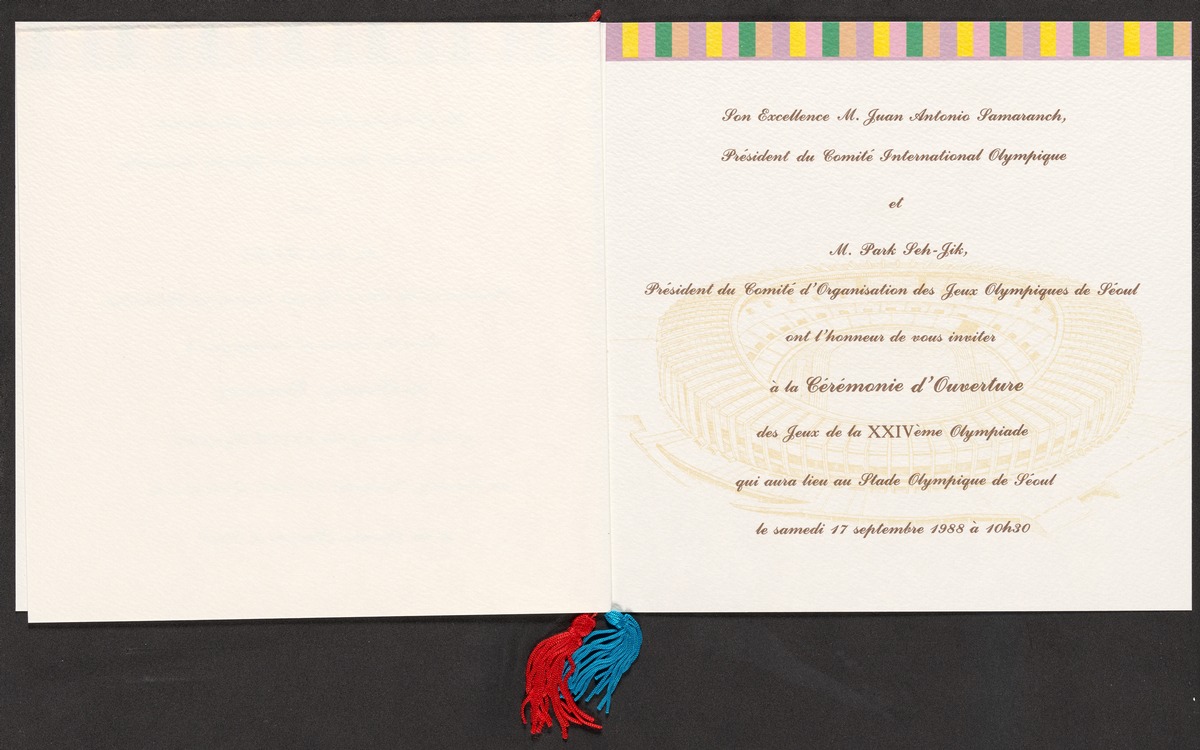 Son Excellence M. Juan Antonio Samaranch,
Président du Comité International Olympique
et
M. Park Seh-Jik,
Président du Comité d'Organisation des Jeux Olympiques de Séoul
ont l'honneur de vous inviter
à la Cérémonie d'Ouverture
des Jeux de la XXIVème Olympiade
qui aura lieu au Stade Olympique de Séoul
le samedi 17 septembre 1988 à 10h30